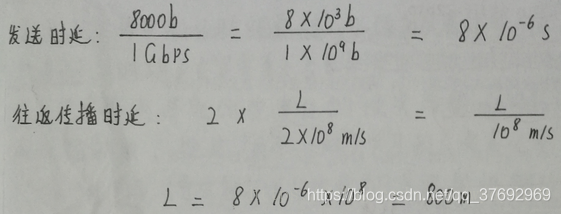 发送时延: 8000b / 1Gbps = 8×10³b / 1×10⁹b = 8×10⁻⁶ s
往返传播时延: 2 × L / 2×10⁸ m/s = L / 10⁸ m/s
L = 8×10⁻⁶ ×10⁸ = 800m
https://blog.csdn.net/qq_37692969